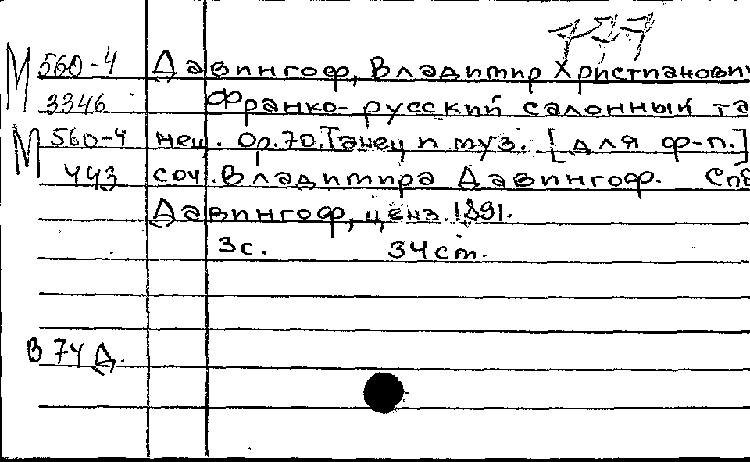 М 560-4 Давингоф, Владимир Христианович
3346 Франко-русский салонный та
М 560-4 нец. Ор.70. Танец и муз. [для ф-п.]
443 соч. Владимира Давингоф. Спб
Давингоф, ценз. 1891.
3с. 34ст.
В 74 Д.